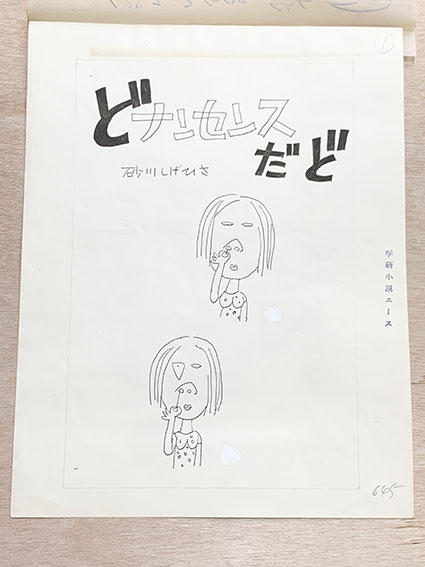 ①
どナンセンス
だど
砂川しげひさ
学研小説エース
645